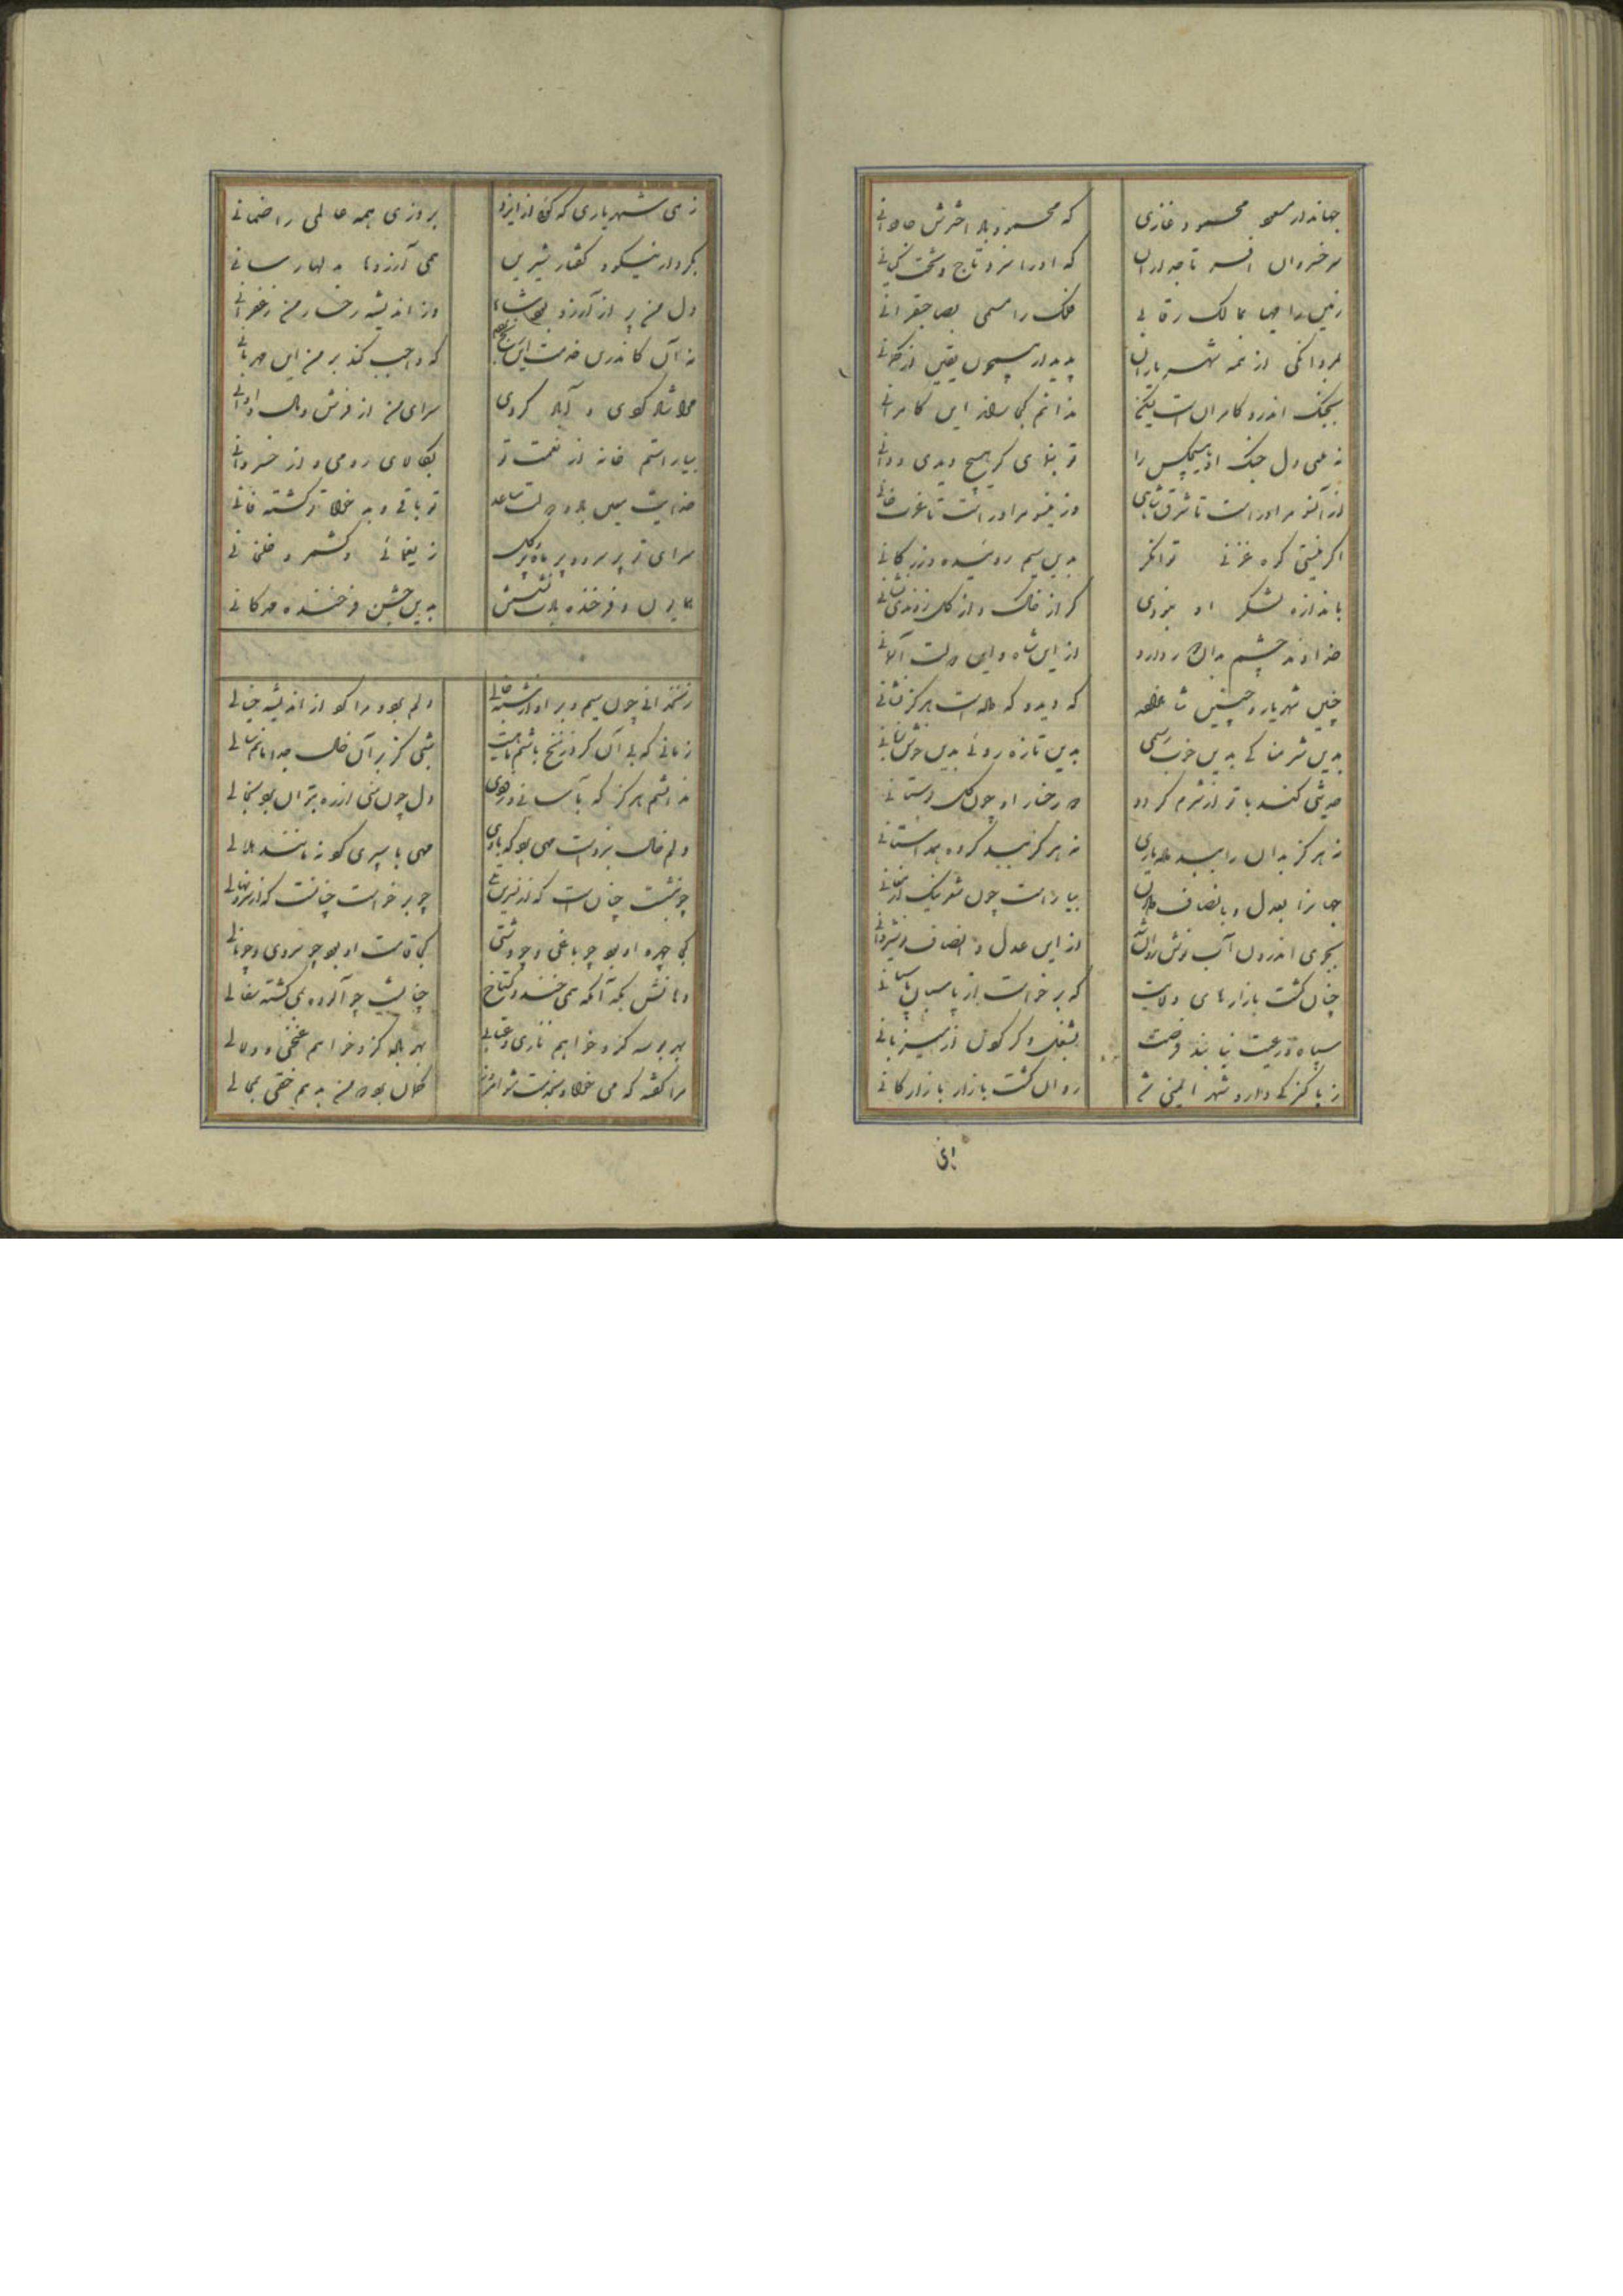 جهاندار مسعود محمود غازی که محمود باد اخترش جاودانی
سر خسروان افسر تاجداران که او را سزد تاج و تخت کیانی
زمین را مهیا بمالک رقابی فلک را مسمی بصاحبقرانی
بمردانگی از همه شهریاران پدیدار همچون یقین از گمانی
بجنگ اندرون کامرانست لیکن ندانم کجا راند این کامرانی
نه همی دل جنگ او هیچکس را تو بنمای گر هیچ دیدی و دانی
از آنسو مر او راست تا شرق شاهی وزینسو مر او راست تا غرب خانی
اگر نیستی کوه غزنی توانگر بدین سیم روینده و زر کانی
باندازه لشکر او نبودی گر از خاک و از گل زدندی شیانی
خداوند چشم بدان دور دارد از این شاه و این دولت آسمانی
چنین شهریار و چنین شاهزاده که دید و که داده است هرگز نشانی
بدین شرمناکی بدین خوب رسمی بدین تازه روئی بدین خوش زبانی
حدیثی کند با تو از شرم گردد دو رخسار او چون گل بوستانی
نه هرگز بدان را ببد داده یاری نه هرگز ببد کرده همداستانی
جهانرا بعدل و بانصاف دادن بیاراست چون شعر نیک از معانی
بجوی اندرون آب نوش روان شد از این عدل و انصاف نوشیروانی
چنان گشت بازارهای ولایت که برخواست از پاسبان پاسبانی
سپاه و رعیت نیابند فرصت بشغل دگر کردن از میزبانی
ز پاکیزگی دارد و شهر ایمنی شد روان گشت بازار بازارگانی
زهی شهریاری که گوئی از ایزد بروزی همه عالمی را ضمانی
بکردار نیکو و گفتار شیرین همی آرزوها بدلها رسانی
دل من پر از آرزو بود شاها وز اندیشه رخسار من زعفرانی
نه آن کاندرین خدمت این رنج بینم که واجب کند بر من این مهربانی
مرا شاد کردی و آباد کردی سرای من از فرش و مال و اوانی
بیاراستم خانه از نعمت تو بکالای رومی و از خسروانی
خدایت معین باد و دولت مساعد تو باقی و بدخواه تو گشته فانی
سرای تو پر سرو و پر ماه و پر گل ز یغمائی و کشمر و خلخانی
همایون و فرخنده بادت نشستن بدین جشن فرخنده مهرگانی
زنخدانی چون سیم و بر او از شبه خالی دلم بود مرا کو از اندیشه خیالی
زمانی که بی آن گرد زنخ باشم ماهیست شبی کز بر آن خال جدا مانم سالی
ندانستم هرگز که بآسانی و دلجوئی دل چون منی از ره بتوان برد بخالی
دلم خال نبردست مهی برد که باری مهی با سپری کو نه بمانند هلالی
چو بنشست چنانست که از نسرین چو برخواست چنانست که از سرو نهالی
کجا چهره او بود چو باغی و چو دشتی کجا قامت او بود چو سروی و چو نالی
دهانش بچه آنگه که همی خندد گستاخ چنانست چو آلوده بمی گشته سفالی
بهر بوسه کزو خواهم نازی و عتابی بهر باده کزو خواهم غنجی و دلالی
مرا گفته که می خواه و بخدمت شو امروز گمان بود که من بدهم حقی بمحالی
این